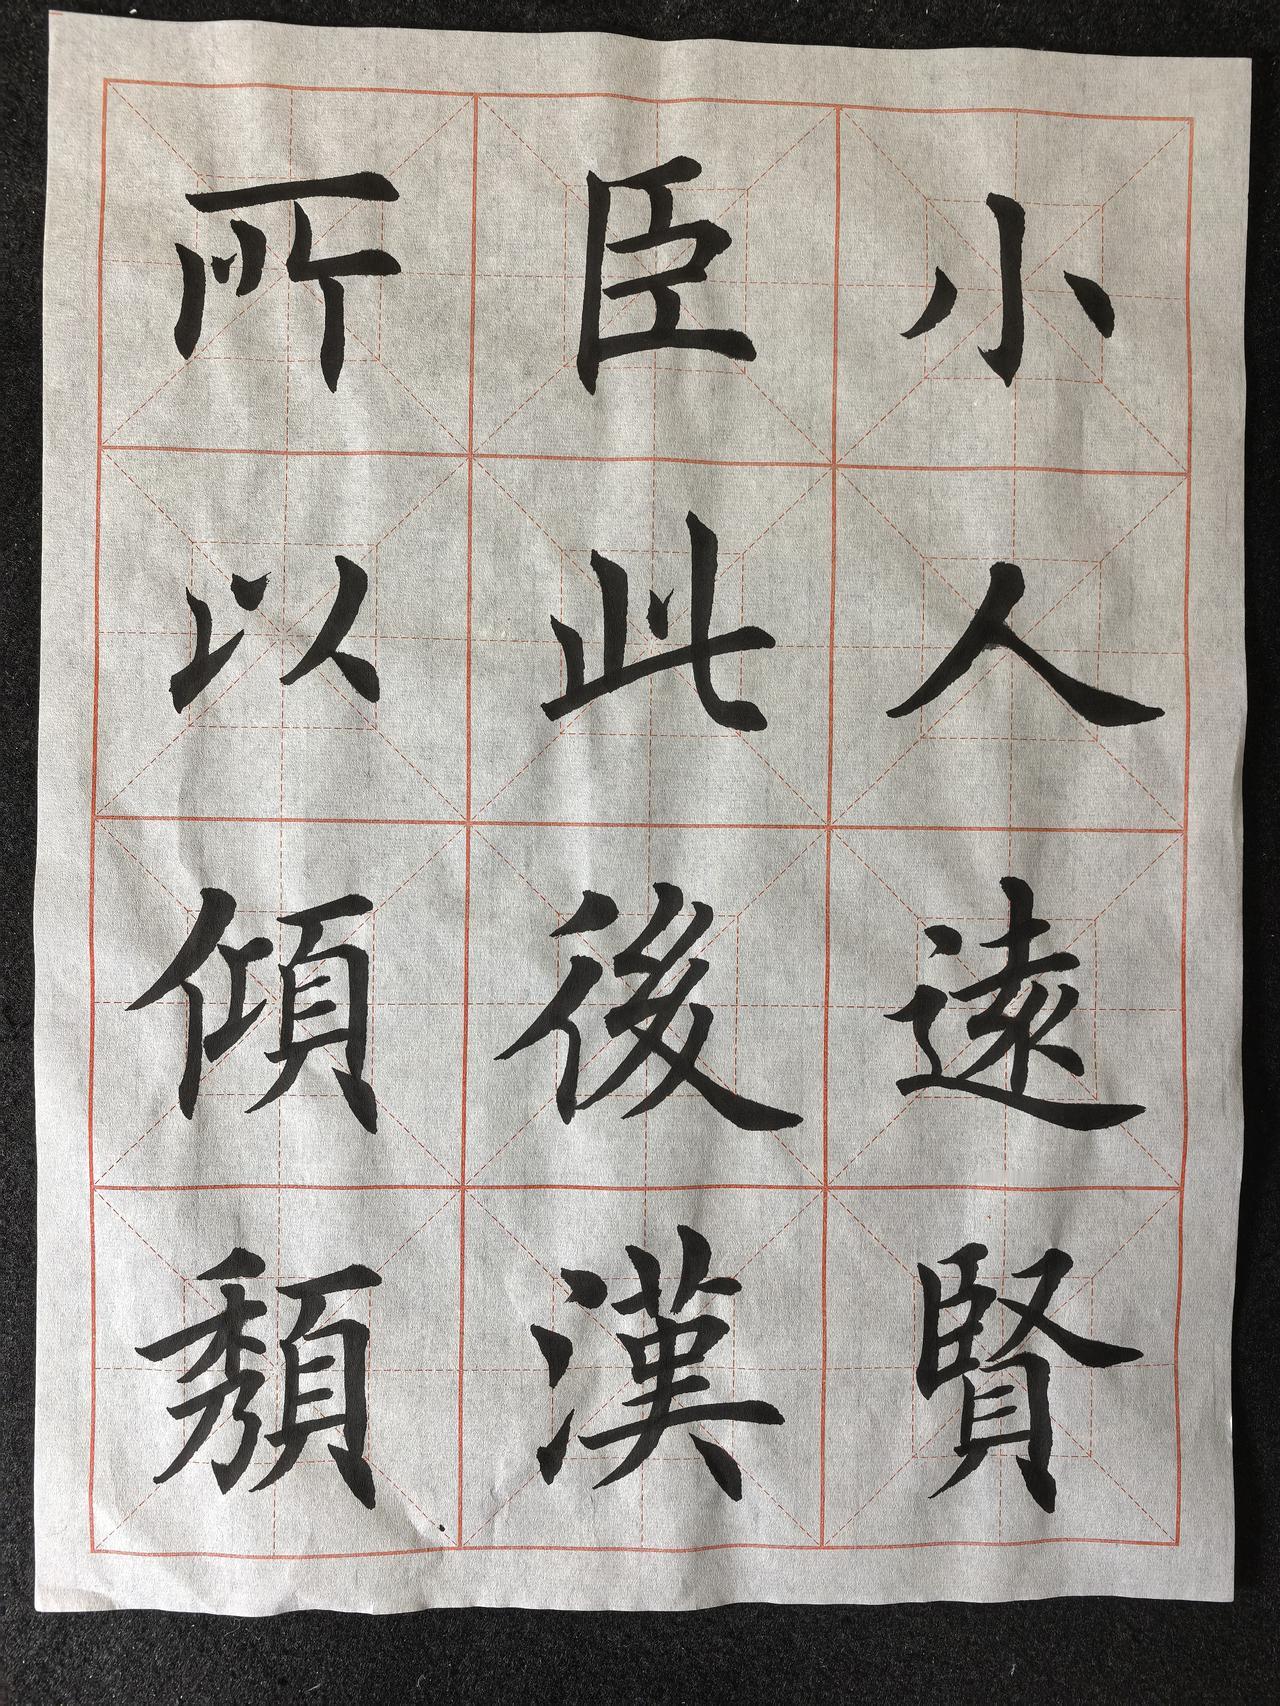 小人遠賢
臣此後漢
所以傾頹